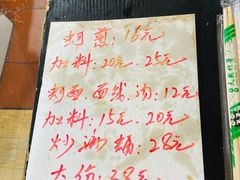 蚵煎:15元
加料:20元 25元
蚵面 面线 汤:12元
加料:15元. 20元
炒 粿:28元
28元